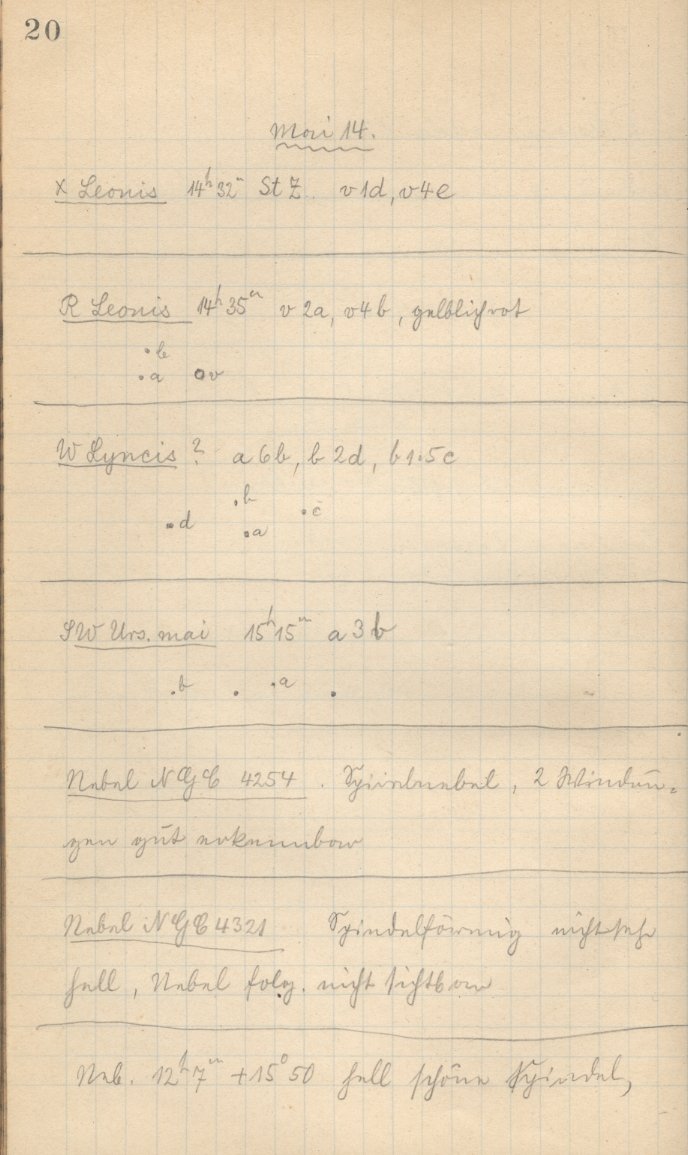 20
Mai 14.
X Leonis 14h 32m St Z. v1d, v4e
R Leonis 14h 35m v 2a, v4b, gelblichrot
.b
.a .v
W Lyncis ? a 6b, b 2d, b 1.5c
.b
.d .c
.a
SW Urs. mai 15h 15m a 3 b
.b . .a .
Nebel N G C 4254. Spiralnebel, 2 Windun=
gen gut erkennbar
Nebel N G C 4321 Spindelförmig nicht sehr
hell, Nebel folg. nicht sichtbar
Neb. 12h 7m +15° 50 hell schöne Spindel,